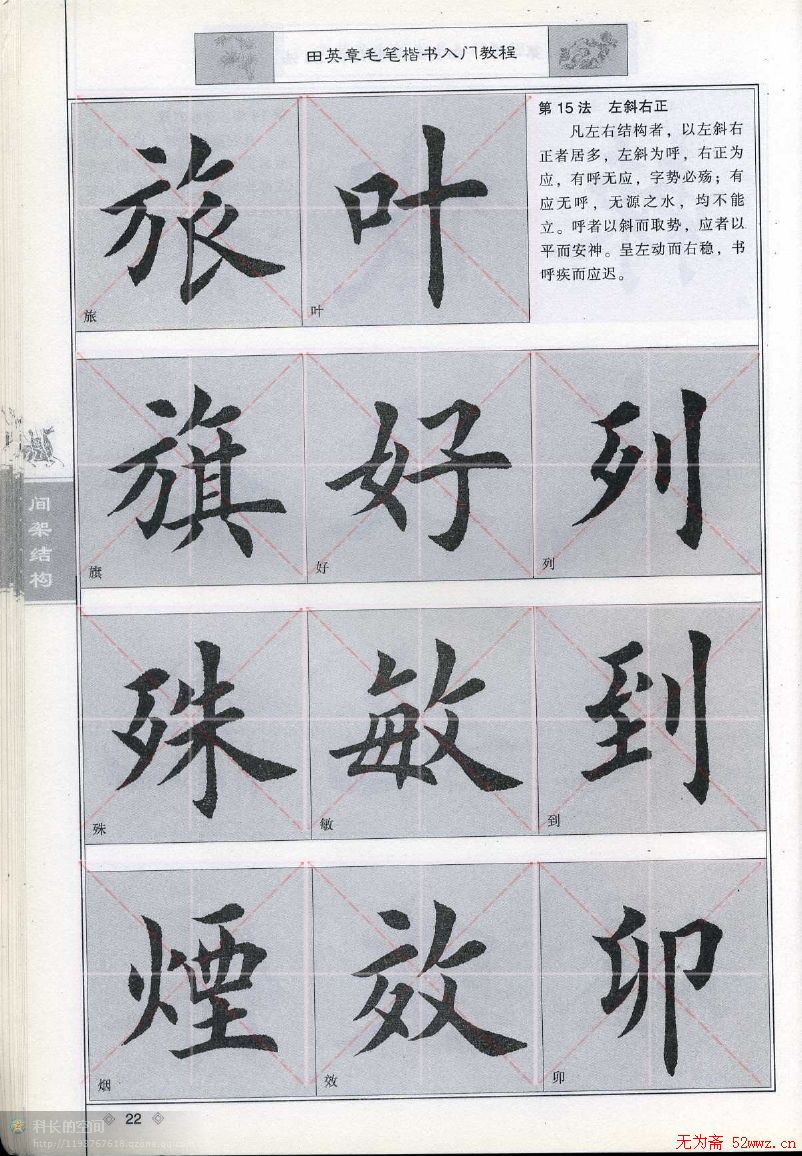 田英章毛笔楷书入门教程
第15法 左斜右正
凡左右结构者，以左斜右
正者居多，左斜为呼，右正为
应，有呼无应，字势必殇；有
应无呼，无源之水，均不能
立。呼者以斜而取势，应者以
平而安神。呈左动而右稳，书
呼疾而应迟。
旅 叶
旅 叶
旗 好 列
旗 好 列
殊 敏 到
殊 敏 到
煙 效 卯
烟 效 卯
间架结构
22
科长的空间
http://1193767618.qzone.qq.com
无为斋 52wwz.cn